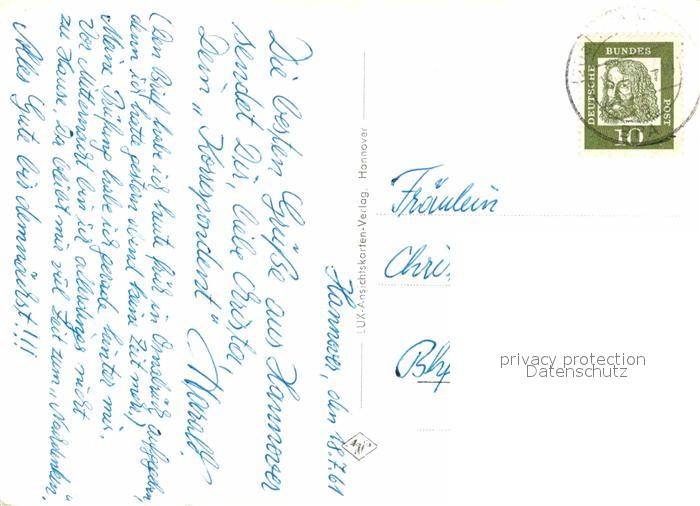 Hannover, den 18.7.61
Die besten Grüße aus Hannover
sendet Dir, liebe Christa,
Dein „Korrespondent“ Harald
(Den Brief habe ich heute früh in Osnabrück aufgegeben,
denn ich hatte gestern abend keine Zeit mehr.)
Meine Prüfung habe ich gerade hinter mir.
Vor Mitternacht bin ich allerdings nicht
zu Hause. Da bleibt mir viel Zeit zum „Nachdenken“.
Alles Gute bis demnächst!!!
LUX-Ansichtskarten-Verlag, Hannover
Fräulein
Chri
Bhf
DEUTSCHE
BUNDES
POST
10
privacy protection
Datenschutz